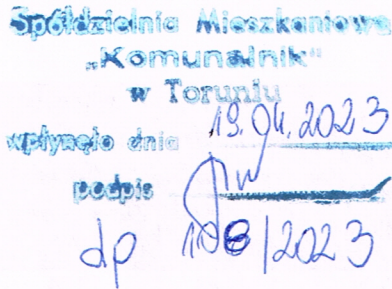 Spółdzielnia Mieszkaniowa
„Komunalnik"
w Toruniu
wpłynęło dnia 19.04.2023
podpis
dp 108/2023